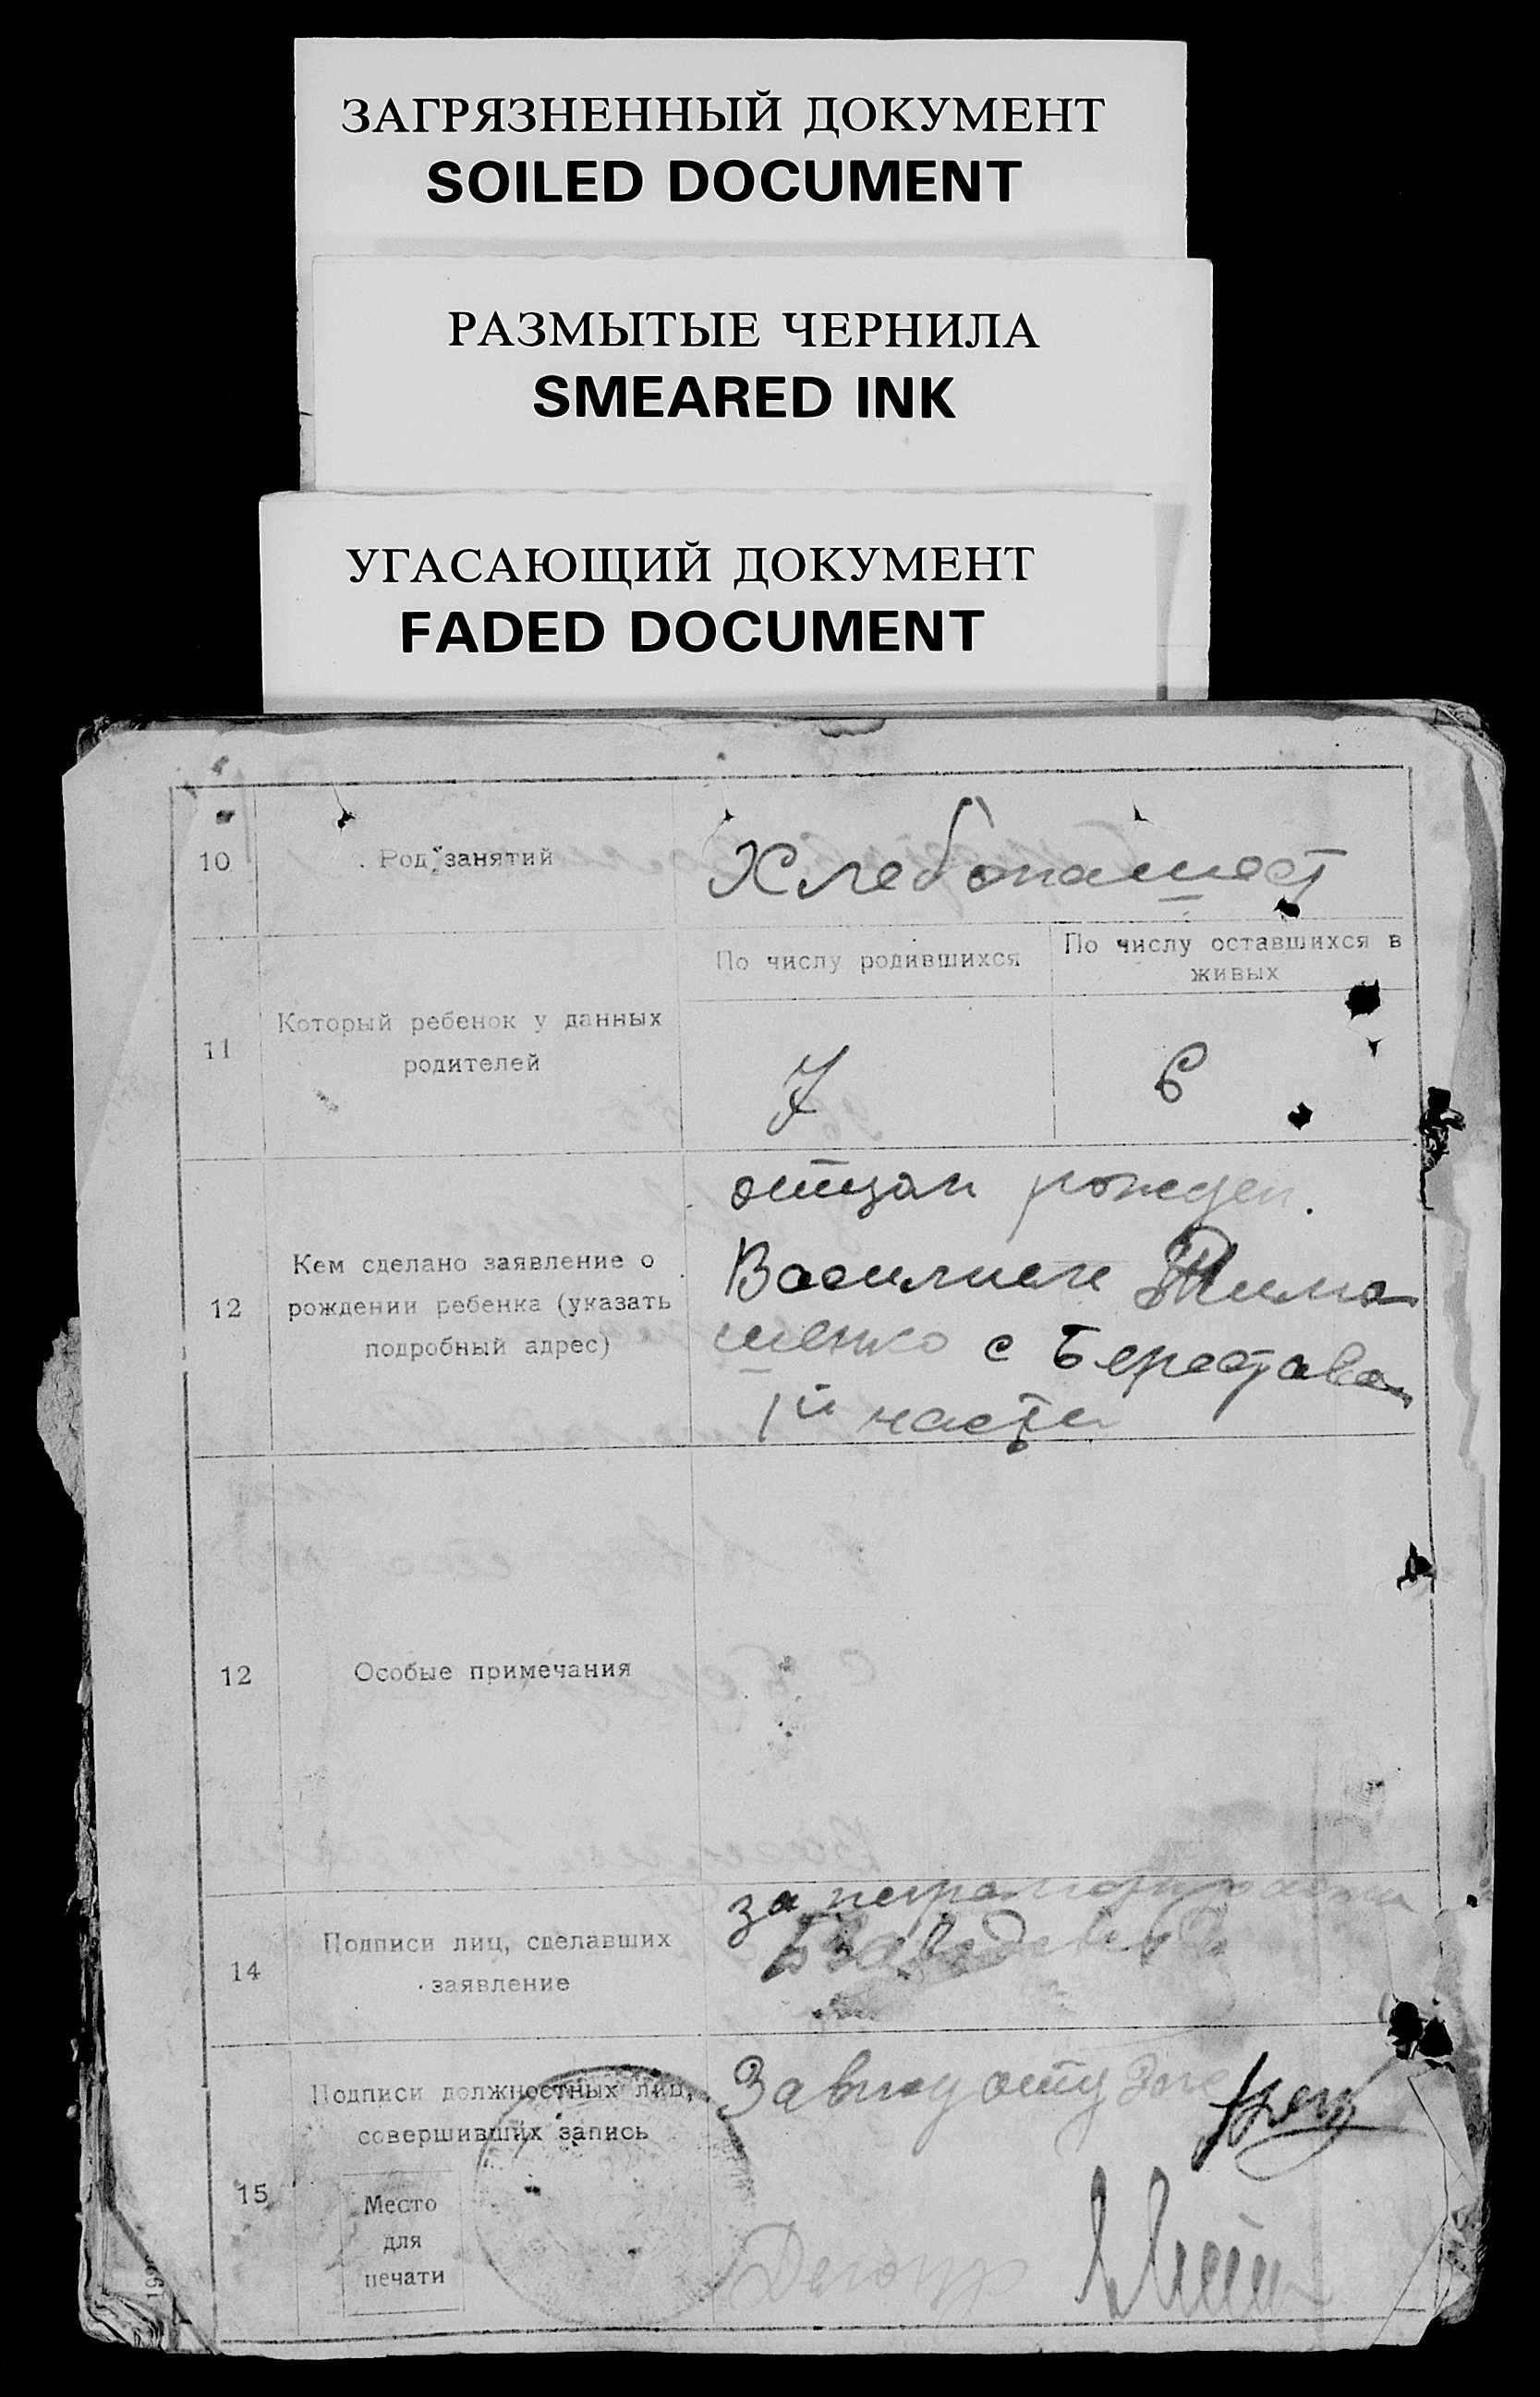 ЗАГРЯЗНЕННЫЙ ДОКУМЕНТ
SOILED DOCUMENT
РАЗМЫТЫЕ ЧЕРНИЛА
SMEARED INK
УГАСАЮЩИЙ ДОКУМЕНТ
FADED DOCUMENT
10
Род занятий
Хлебопашест
11
Который ребенок у данных
родителей
По числу родившихся
По числу оставшихся в
живых
7
6
12
Кем сделано заявление о
рождении ребенка (указать
подробный адрес)
отцом рожден.
Василием Тимо
шенко с Берестова
1й части
12
Особые примечания
14
Подписи лиц, сделавших
заявление
за
15
Подписи должностных лиц,
совершивших запись
Место
для
печати